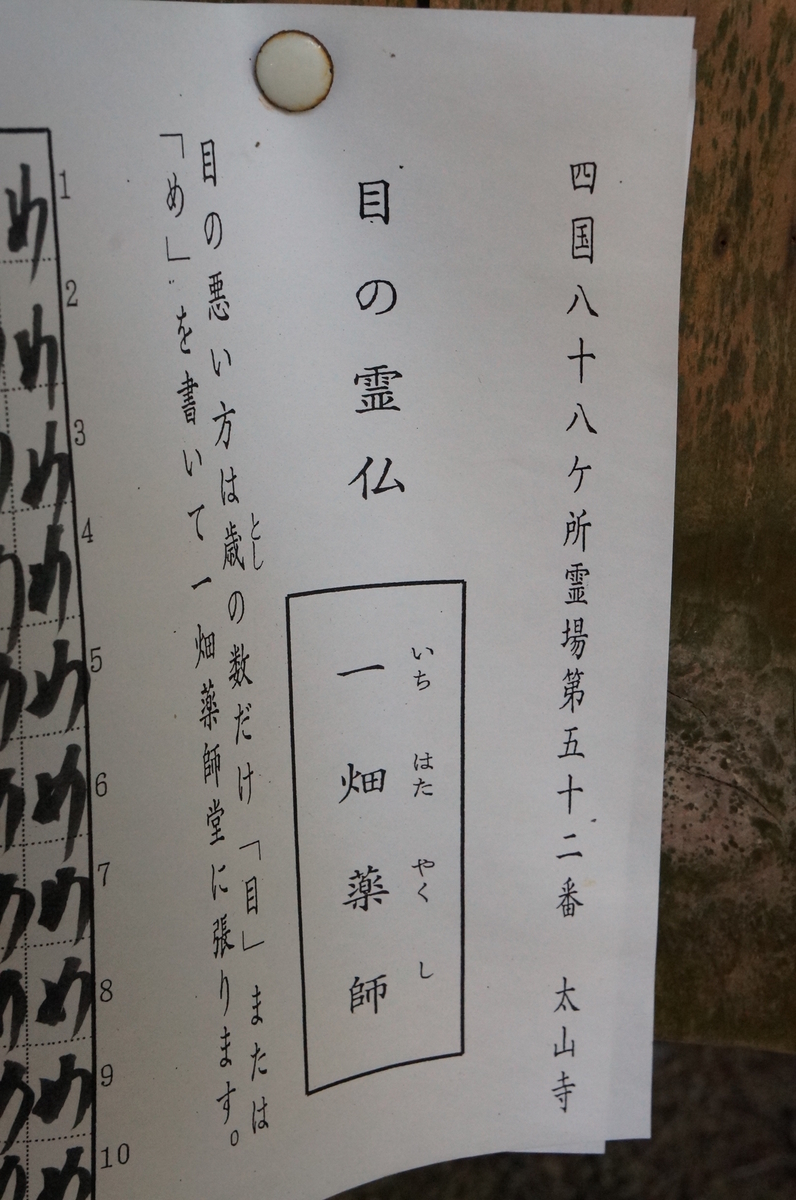 四国八十八ケ所霊場第五十二番 太山寺
目の霊仏
いちはたやくし
一畑薬師
とし
目の悪い方は歳の数だけ「目」または
「め」を書いて一畑薬師堂に張ります。
1
め
2
め
3
め
4
め
5
め
6
め
7
め
8
め
9
め
10
め